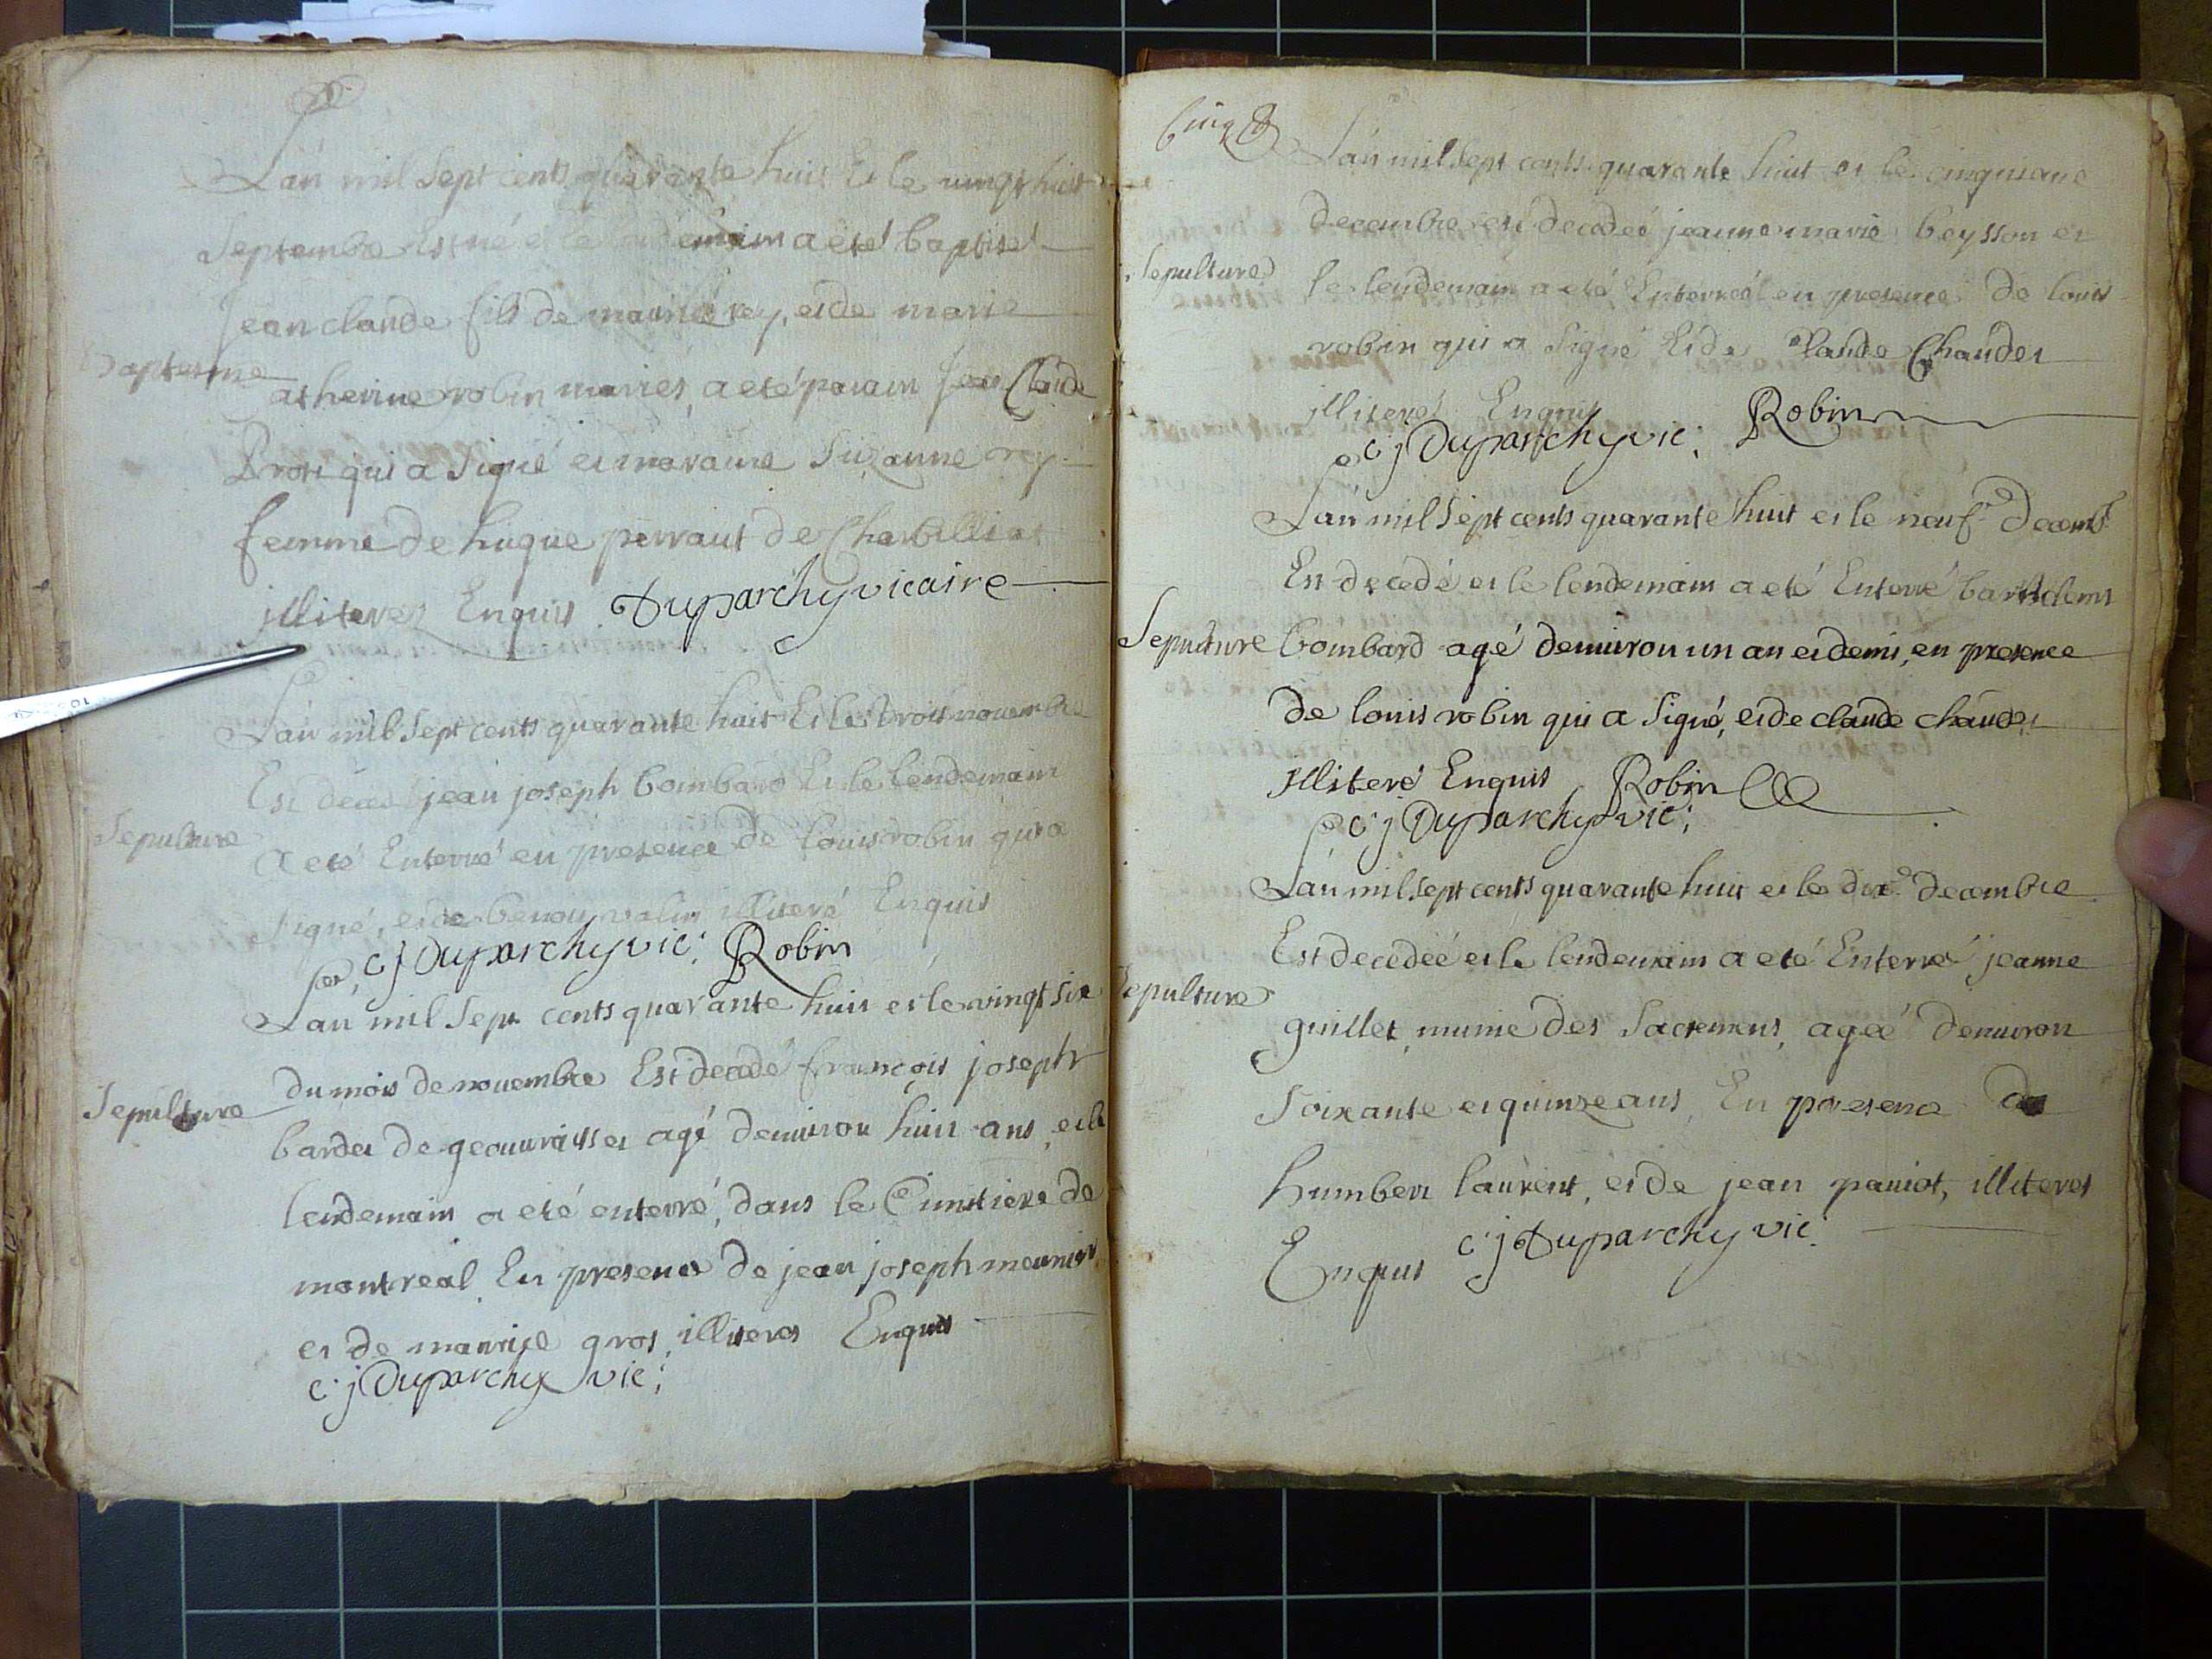 L'an mil sept cents quarante huit Et le vingt huit
Septembre Est né et le lendemain a eté baptisé
Jean claude fils de maurice rey, et de marie
Baptesme
Catherine robin mariés, a eté parain Jean Claude
qui a signé et maraine Suzanne rey
femme de hugue perraut de Charbilliat
illiteres Enquis Duparchy vicaire
L'an mil sept cents quarante huit Et le trois novembre
Est decedé jean joseph bombard Et le lendemain
Sepulture
a eté Enterré en presence de louis robin qui a
signé, et de benoit valin illiteré Enquis
c j Duparchy vic: Robin
L'an mil sept cents quarante huit et le vingt six
du mois de novembre Est decedé françois joseph
Sepulture
bardet de geouvraisset agé denviron huit ans, et le
lendemain a eté enterré, dans le Cimetiere de
montreal En presence de jean joseph meunier
et de maurise gros, illiteres Enquis
c j Duparchy vic:
Cinq
L'an mil sept cents quarante huit et le cinquieme
decembre est decedeé jeanne marie beysson et
Sepulture
le lendemain a eté Enterreé en presence de louis
robin qui a signé Et de Claude Chaudet
illiteré Enquis Robin
c j Duparchy vic:
L'an mil sept cents quarante huit et le neufe decemb
Est decedé et le lendemain a eté Enterré barthelemi
Sepulture
bombard agé denviron un an et demi, en presence
de louis robin qui a signé, et de claude chaudet
illiteré Enquis Robin
c j Duparchy vic:
L'an mil sept cents quarante huit et le dixe decembre
Est decedeé et le lendemain a eté Enterré jeanne
Sepulture
guillet, munie des Sacremens, ageé denviron
soixante et quinze ans, En presence de
humbert laurent, et de jean paviot, illiteres
Enquis c j Duparchy vic: